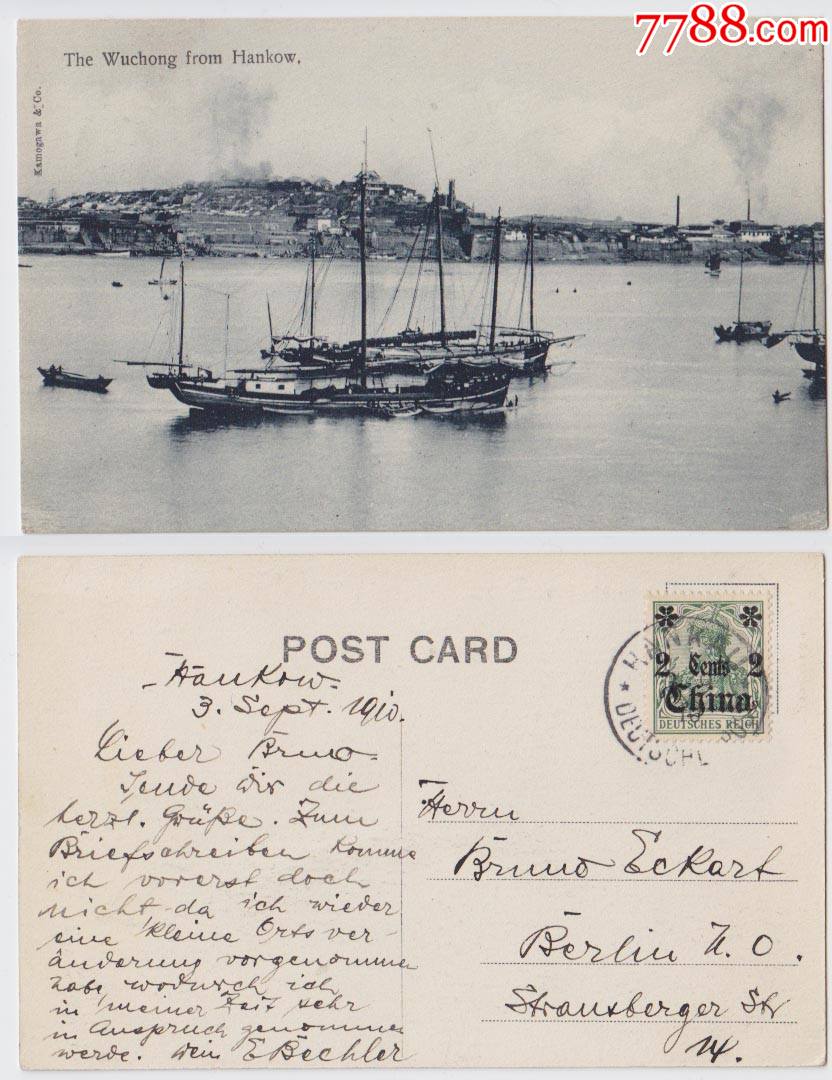 7788.com
The Wuchong from Hankow.
Kamogawa & Co.
POST CARD
Hankow
3. Sept. 1910.
Lieber Bruno
Sende Dir die
herzl. Grüße. Zum
Briefschreiben komme
ich vorerst doch
nicht da ich wieder
eine kleine Ortsver-
änderung vorgenommen
habe wodurch ich
in meiner Zeit sehr
in Anspruch genommen
werde. Dein E Bechler
2 Cents 2
China
DEUTSCHES REICH
HANKAU
DEUTSCHE POST
Herrn
Bruno Eckart
Berlin N. O.
Strausberger Str
14.